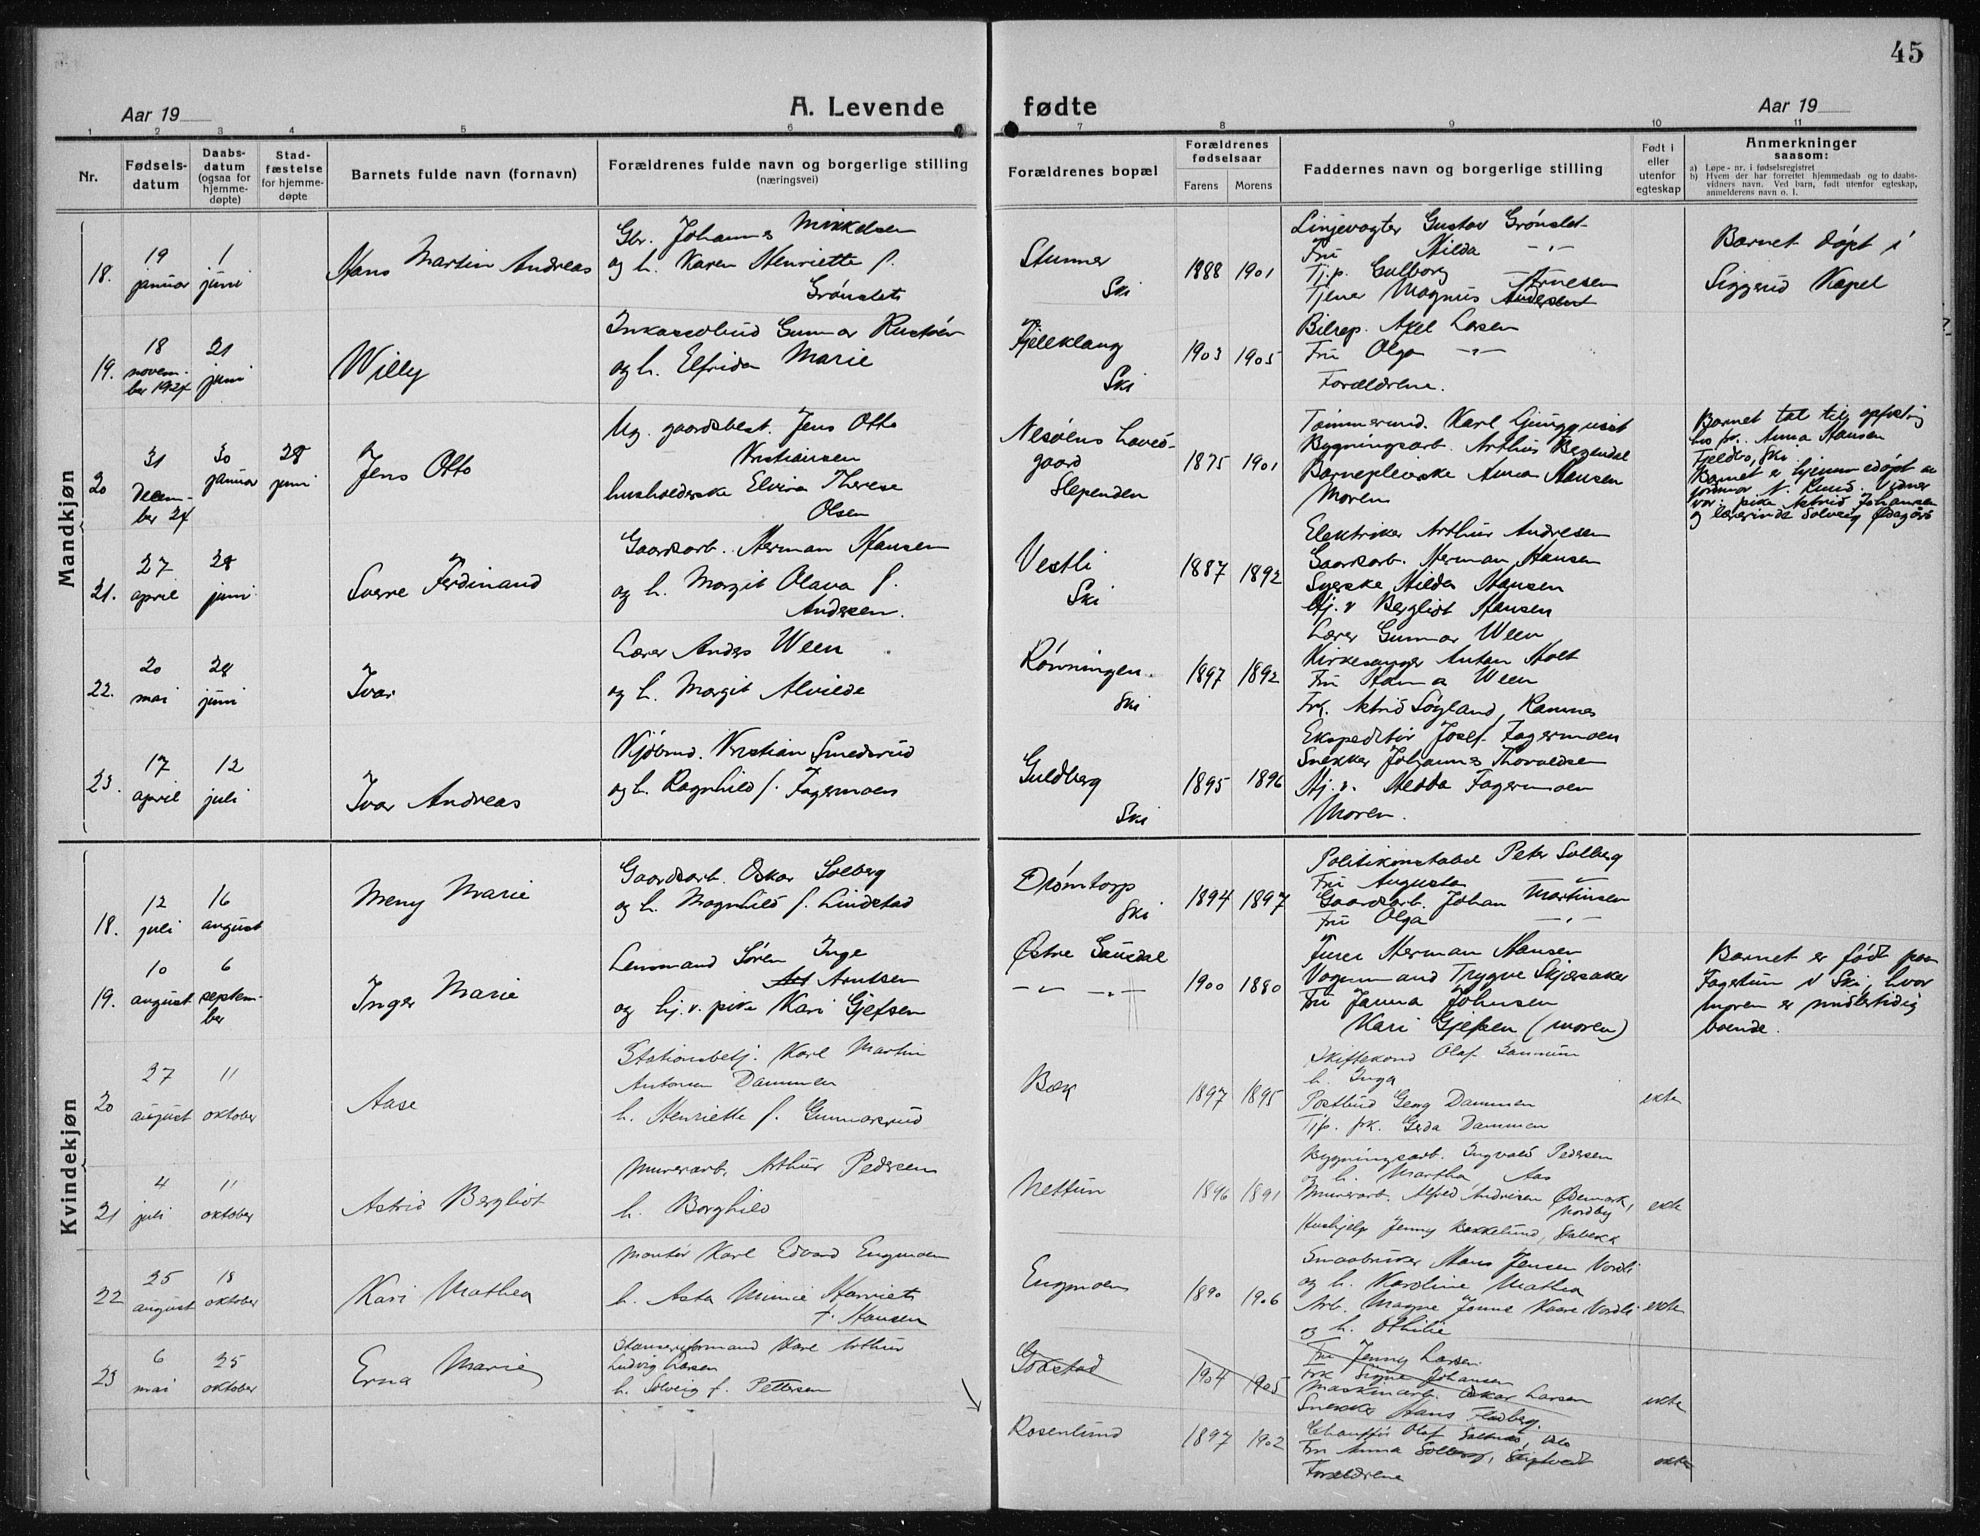 45
Aar 19
A. Levende fødte
Aar 19
1 2 3 4 5 6 7 8 9 10 11
Nr.
Fødselsdatum
Daabsdatum (ogsaa for hjemmedøpte)
Stadfæstelse for hjemmedøpte
Barnets fulde navn (fornavn)
Forældrenes fulde navn og borgerlige stilling (næringsvei)
Forældrenes bopæl
Forældrenes fødselsaar
Farens Morens
Faddernes navn og borgerlige stilling
Født i eller utenfor egteskap
Anmerkninger saasom:
a) Løpe-nr. i fødselsregistret
b) Hvem der har forrettet hjemmedaab og to daabsvidners navn. Ved barn, født utenfor egteskap, anmelderens navn o. l.
Mandkjøn
18.
19 januar
1 juni
Hans Martin Andreas
Gbr. Johannes Mikkelsen
og h. Karen Henriette f.
Grønslet
Stunner
Ski
1888 1901
Linjevogter Gustav Grønslet
Fru Hilda -"-
Tj.p. Gulborg
Tjener Magnus Arnesen
Barnet døpt i
Siggerud Kapel
19.
18 november 1924
21 juni
Willy
Inkassobud Gunnar
og h. Elfrida Marie
Fjellklang
Ski
1903 1905
Bilrep. Axel Larsen
Fru Olga -"-
Forældrene.
20
31 december 24
30 januar
28 juni
Jens Otto
Ug. gaardsbest. Jens Otto
Kristiansen
husholderske Elvira Therese
Olsen
Nesøens
gaard
Slependen
1875 1901
Tømmermd. Karl Ljungquist
Bygningsarb. Arthur
Barnepleierske Anna Hansen
Moren
Barnet tat til
hos fr. Anna Hansen
Fjeldbo, Ski.
Barnet er hjemmedøpt av
jormor N. Ruud. Vidner
var: pike Astrid Johansen
og lærerinde Solveig
21.
27 april
28 juni
Sverre Ferdinand
Gaardsarb. Herman Hansen
og h. Margit Olava f.
Andersen.
Vestli
Ski
1887 1892
Elektriker Arthur Andresen
Gaardsarb. Herman Hansen
Syerske Hilda Hansen
Hj. v Bergliot Hansen
22.
20 mai
28 juni
Ivar
Lærer Anders Ween
og h. Margit Alvilde
Rønningen
Ski
1897 1892
Lærer Gunnar Ween
Kirkesanger Anton Holt
Fru Hanna Ween
Frk. Astrid Søyland, Ramnes
23.
17 april
12 juli
Ivar Andreas
Kjøbmd. Kristian Smedsrud
og h. Ragnhild f. Fagermoen
Guldberg
Ski
1895 1896
Ekspeditør Josef Fagermoen
Snekker Johannes Thorvaldsen
Hj. v. Hedda Fagermoen
Moren.
Kvindekjøn
18.
12 juli
16 august
Meny Marie
Gaardsarb. Oskar Solberg
og h. Magnhild f. Lindstad
Drømtorp
Ski
1894 1897
Politikonstabel Peter Solberg
Fru Augusta -"-
Gaardsarb. Johan Martinsen
Fru Olga -"-
19.
10 august
6 september
Inger Marie
Lensmand Søren Inge
Arntsen
og hj. v. pike Kari Gjefsen
Østre Gausdal
-"- -"-
1900 1880
Furer Herman Hansen
Vognmand Trygve Skjersaker
Fru Janna Johnsen
Kari Gjefsen (moren)
Barnet er født paa
Fagertun i Ski, hvor
moren er midlertidig
boende.
20
27 august
11 oktober
Aase
Stationsbetj. Karl Martin
Anton Dammen
h. Henriette f. Gunnarsrud
Bæk
1897 1895
Skiftekond Olaf
h. Inga
Postbud Georg Dammen
Tjp. frk. Gerda Dammen
ekte
21
4 juli
11 oktober
Astrid Bergliot
Murerarb. Arthur Pedersen
h. Borghild
Nettun
1896 1891
Bygningsarb. Ingvald Pedersen
og h. Martha Aas
Murerarb. Alfred Andresen Ødemark,
Nordby
Hushjelp Jenny Bakkelund, Stabekk
ekte
22
25 august
18 oktober
Kari Mathea
Montør Karl Edvard Engmoen
h. Asta Minnie Harriet
f. Hansen
Engmoen
1890 1906
Smaabruker Hans Jensen Nordli
og h. Karoline Mathea
Arb. Magne Jonns Kaare Nordli
og h. Othilie
ekte
23
6 mai
25 oktober
Erna Marie
Stanseriformand Karl Arthur
Ludvig Larsen
h. Solveig f. Pettersen
Gokstad
1904 1905
Fru Jenny Larsen
Frk Signe Johansen
Maskinarb. Oskar Larsen
Snekker Hans Fladberg.
ekte
Rosenlund
1897 1902
Chauffør Olaf Solberg, Oslo
Fru Anna Solberg,
Forældrene
ekte